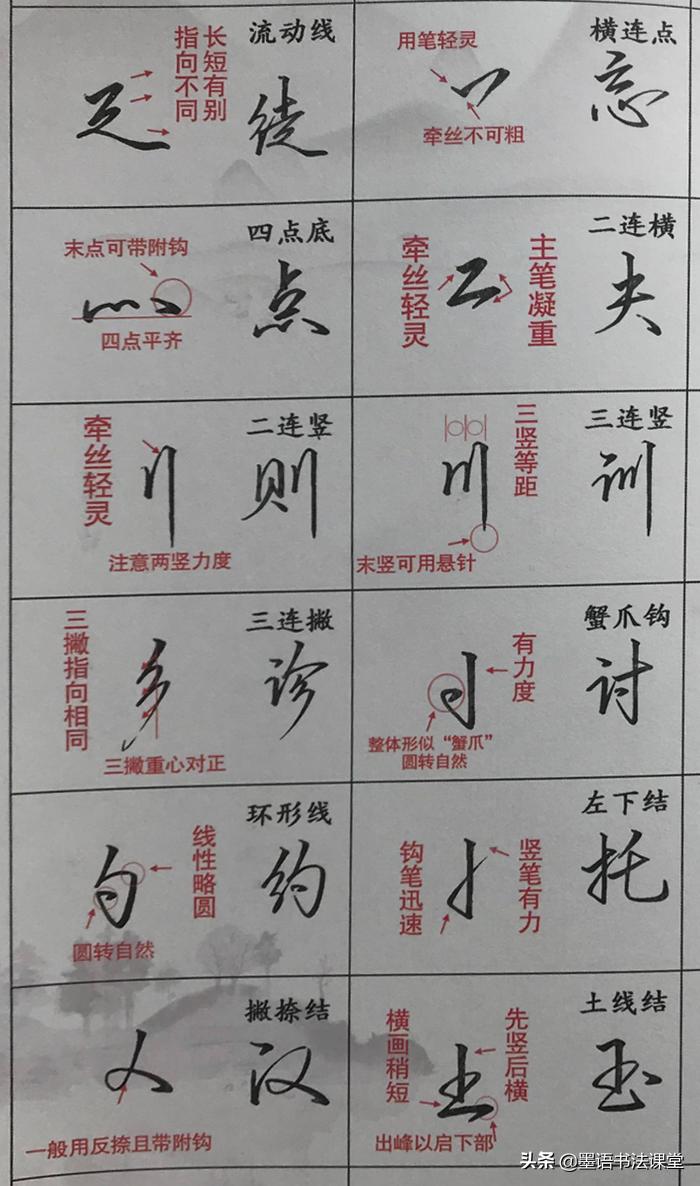 流动线
长短有别
指向不同
徒
横连点
用笔轻灵
牵丝不可粗
忘
四点底
末点可带附钩
四点平齐
点
二连横
牵丝轻灵
主笔凝重
夫
二连竖
牵丝轻灵
注意两竖力度
则
三连竖
三竖等距
末竖可用悬针
训
三连撇
三撇指向相同
三撇重心对正
诊
蟹爪钩
有力度
整体形似“蟹爪”
圆转自然
讨
环形线
线性略圆
圆转自然
约
左下结
钩笔迅速
竖笔有力
托
撇捺结
一般用反捺且带附钩
汉
土线结
横画稍短
先竖后横
出峰以启下部
玉
头条 @墨语书法课堂